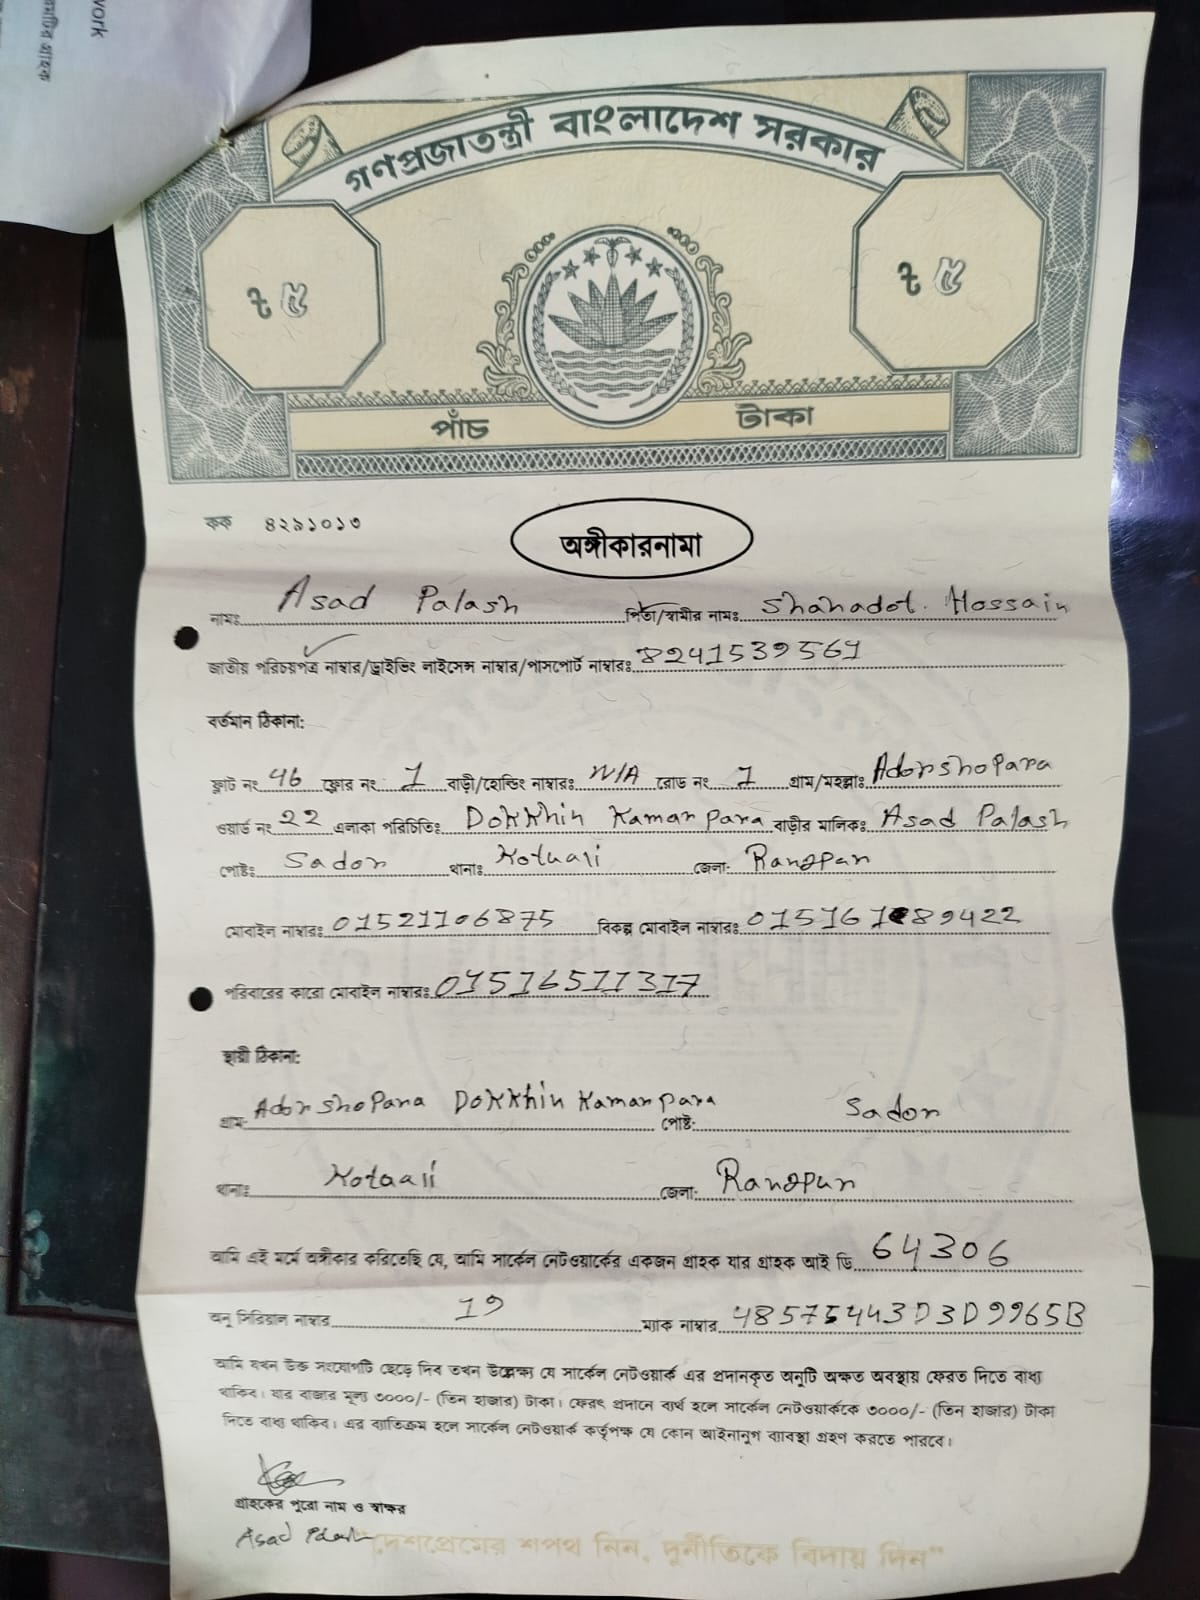 work
গণপ্রজাতন্ত্রী বাংলাদেশ সরকার
৳ ৫ ৳ ৫
পাঁচ টাকা
কক ৪২৯১০১৩
অঙ্গীকারনামা
নামঃ Asad Palash পিতা/স্বামীর নামঃ Shahadot. Hossain
জাতীয় পরিচয়পত্র নাম্বার/ড্রাইভিং লাইসেন্স নাম্বার/পাসপোর্ট নাম্বারঃ 8241539561
বর্তমান ঠিকানা:
ফ্লাট নং 46 ফ্লোর নং 1 বাড়ী/হোল্ডিং নাম্বারঃ N/A রোড নং 1 গ্রাম/মহল্লাঃ Adorshopara
ওয়ার্ড নং 22 এলাকা পরিচিতিঃ Dokkhin Kamarpara বাড়ীর মালিকঃ Asad Palash
পোষ্টঃ Sador থানাঃ Kotuali জেলা- Rangpur
মোবাইল নাম্বারঃ 01521106875 বিকল্প মোবাইল নাম্বারঃ
পরিবারের কারো মোবাইল নাম্বারঃ 01516511317
স্থায়ী ঠিকানা:
গ্রাম- Adorshopara Dokkhin Kamarpara পোষ্ট- Sador
থানাঃ Kotaali জেলা- Rangpur
আমি এই মর্মে অঙ্গীকার করিতেছি যে, আমি সার্কেল নেটওয়ার্কের একজন গ্রাহক যার গ্রাহক আই ডি 64306
অনু সিরিয়াল নাম্বার 19 ম্যাক নাম্বার 48575443D3D9965B
আমি যখন উক্ত সংযোগটি ছেড়ে দিব তখন উল্লেক্ষ্য যে সার্কেল নেটওয়ার্ক এর প্রদানকৃত অনুটি অক্ষত অবস্থায় ফেরত দিতে বাধ্য
থাকিব। যার বাজার মূল্য ৩০০০/- (তিন হাজার) টাকা। ফেরৎ প্রদানে ব্যর্থ হলে সার্কেল নেটওয়ার্ককে ৩০০০/- (তিন হাজার) টাকা
দিতে বাধ্য থাকিব। এর ব্যাতিক্রম হলে সার্কেল নেটওয়ার্ক কর্তৃপক্ষ যে কোন আইনানুগ ব্যাবস্থা গ্রহণ করতে পারবে।
গ্রাহকের পুরো নাম ও স্বাক্ষর
Asad Palash
"দেশপ্রেমের শপথ নিন, দুর্নীতিকে বিদায় দিন"